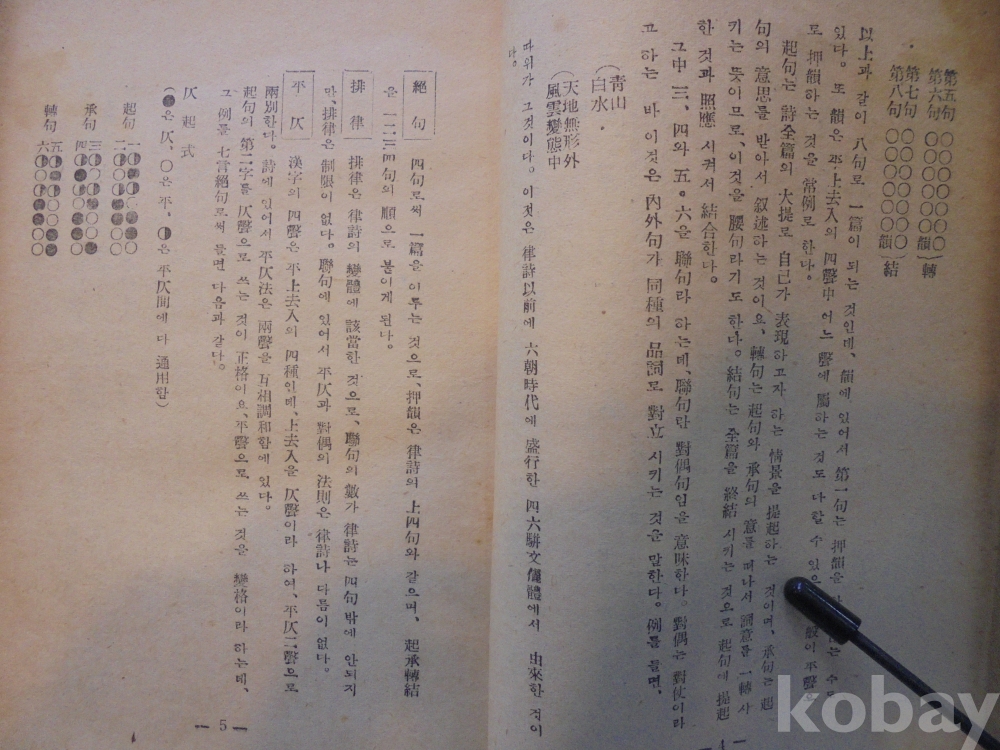 第五句 ○○○○○○○
第六句 ○○○○○○韻 轉
第七句 ○○○○○○○
第八句 ○○○○○○韻 結
以上과 같이 八句로 一篇이 되는 것인데, 韻에 있어서 第一句는 押韻을
있다. 또 韻은 平上去入의 四聲中 어느 聲에 屬하는 것도 다할 수 있으 般이 平聲
로 押韻하는 것을 常例로 한다.
起句는 詩全篇의 大提로 自己가 表現하고자 하는 情景을 提起하는 것이며, 承句는 起
句의 意思를 받아서 叙述하는 것이요, 轉句는 起句와 承句의 意를 떠나서 意를 一轉시
키는 뜻이므로, 이것을 腰句라기도 한다. 結句는 全篇을 終結 시키는 것으로 起句에 提起
한 것과 照應 시켜서 結合한다.
그中 三、四와 五。六을 聯句라 하는데, 聯句란 對偶句임을 意味한다. 對偶는 對仗이라
고 하는 바 이것은 內外句가 同種의 品詞로 對立 시키는 것을 말한다. 例를 들면,
靑山
白水
天地無形外
風雲變態中
따위가 그것이다. 이것은 律詩以前에 六朝時代에 盛行한 四六騈文儷體에서 由來한 것이
다.
— 4
絕句 四句로써 一篇을 이루는 것으로, 押韻은 律詩의 上四句와 같으며, 起承轉結
을 一二三四句의 順으로 붙이게 된다.
排律 排律은 律詩의 變體에 該當한 것으로, 聯句의 數가 律詩는 四句밖에 안되지
만, 排律은 制限이 없다. 聯句에 있어서 平仄과 對偶의 法則은 律詩나 다름이 없다.
平仄 漢字의 四聲은 平上去入의 四種인데, 上去入을 仄聲이라 하여, 平仄二聲으로
兩別한다. 詩에 있어서 平仄法은 兩聲을 互相調和함에 있다.
起句의 第二字를 仄聲으로 쓰는 것이 正格이요, 平聲으로 쓰는 것을 變格이라 하는데,
그 例를 七言絕句로써 들면 다음과 같다.
仄起式
(●은 仄, ○은 平, ◑은 平仄間에 다 通用함)
起句 一
二
承句 三
四
轉句 五
六
— 5 —
kobay